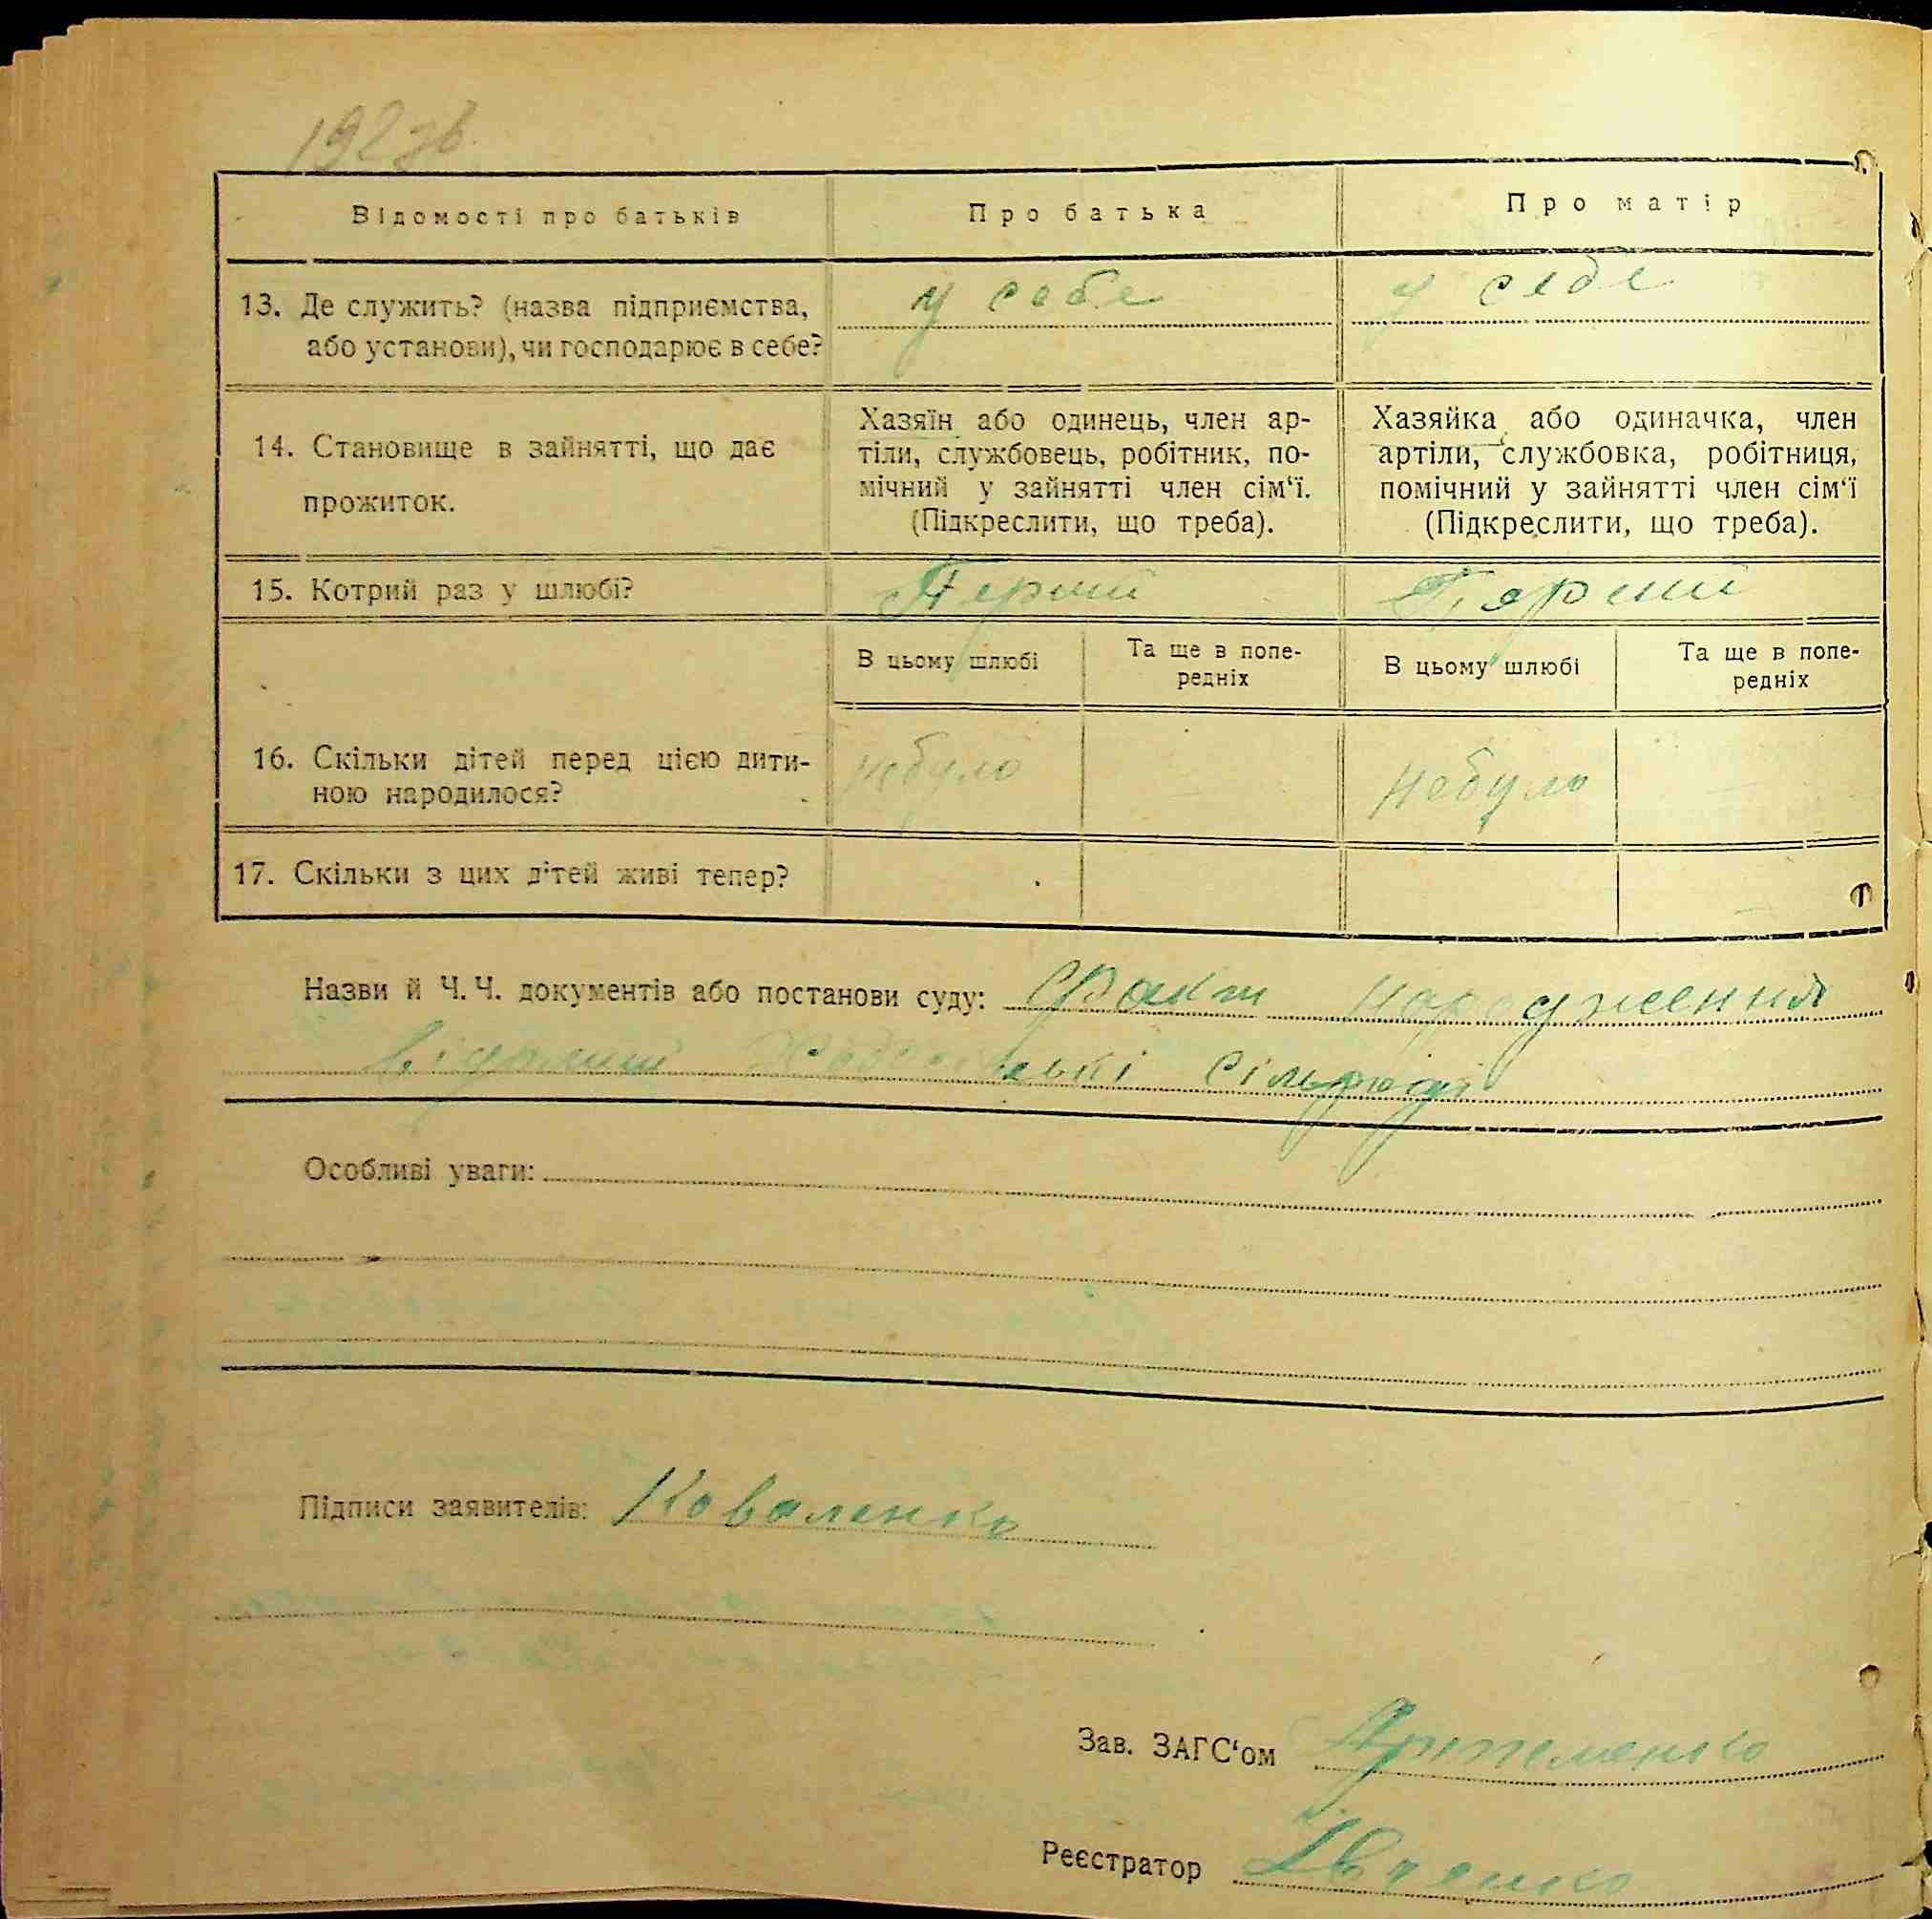 192зв.
Відомості про батьків
Про батька
Про матір
13. Де служить? (назва підприємства,
або установи), чи господарює в себе?
у себе
у себе
14. Становище в зайнятті, що дає
прожиток.
Хазяїн або одинець, член ар-
тіли, службовець, робітник, по-
мічний у зайнятті член сім‘ї.
(Підкреслити, що треба).
Хазяйка або одиначка, член
артіли, службовка, робітниця,
помічний у зайнятті член сім‘ї
(Підкреслити, що треба).
15. Котрий раз у шлюбі?
Перший
Перший
В цьому шлюбі
Та ще в попе-
редніх
В цьому шлюбі
Та ще в попе-
редніх
16. Скільки дітей перед цією дити-
ною народилося?
небуло
небуло
17. Скільки з цих дітей живі тепер?
Назви й Ч. Ч. документів або постанови суду: Факт народження
відомий сільраді
Особливі уваги:
Підписи заявителів: Коваленко
Зав. ЗАГС‘ом Артеменко
Реєстратор